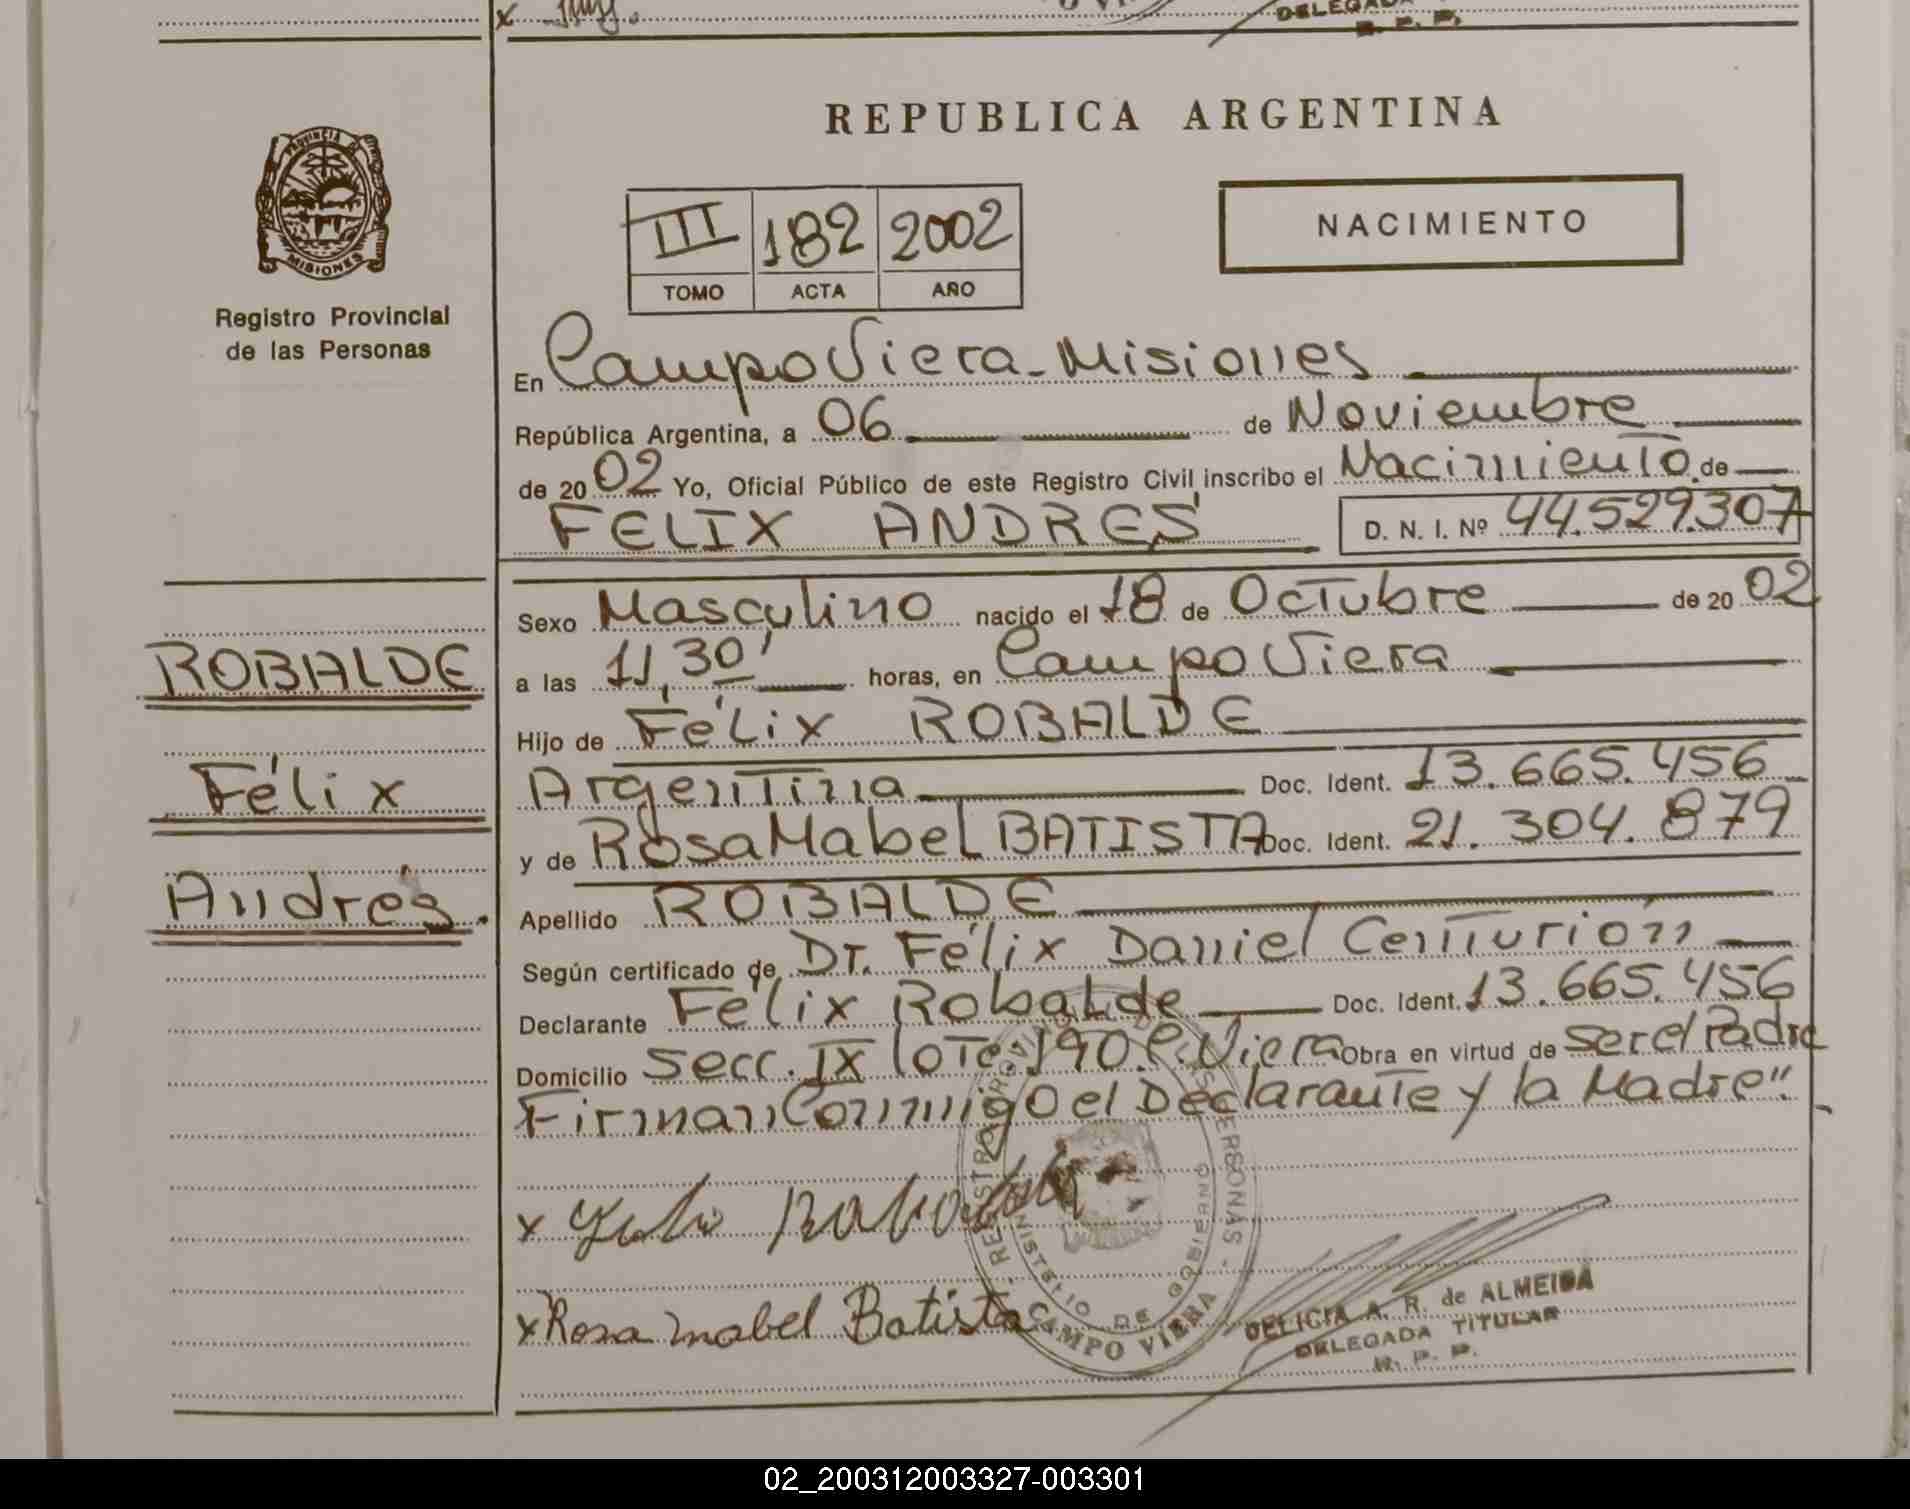 DELEGADA
R. P. P.
REPUBLICA ARGENTINA
PROVINCIA DE
MISIONES
Registro Provincial
de las Personas
III 182 2002
TOMO ACTA AÑO
NACIMIENTO
En Campo Viera - Misiones
República Argentina, a 06 de Noviembre
de 20 02 Yo, Oficial Público de este Registro Civil inscribo el Nacimiento de
FELIX ANDRES D. N. I. Nº 44.529.307
Sexo Masculino nacido el 18 de Octubre de 20 02
ROBALDE
a las 11,30' horas, en Campo Viera
Hijo de Félix ROBALDE
Félix
Argentina Doc. Ident. 13.665.456
y de Rosa Mabel BATISTA Doc. Ident. 21.304.879
Andrés.
Apellido ROBALDE
Según certificado de Dr. Félix Daniel Centurión
Declarante Félix Robalde Doc. Ident. 13.665.456
Domicilio Secc. IX lote 190. C. Viera Obra en virtud de ser el Padre
Firman Conmigo el Declarante y la Madre".
REGISTRO PROVINCIAL DE LAS PERSONAS
MINISTERIO DE GOBIERNO
CAMPO VIERA
x Robalde
x Rosa mabel Batista
DELICIA A. R. de ALMEIDA
DELEGADA TITULAR
R. P. P.
02_200312003327-003301